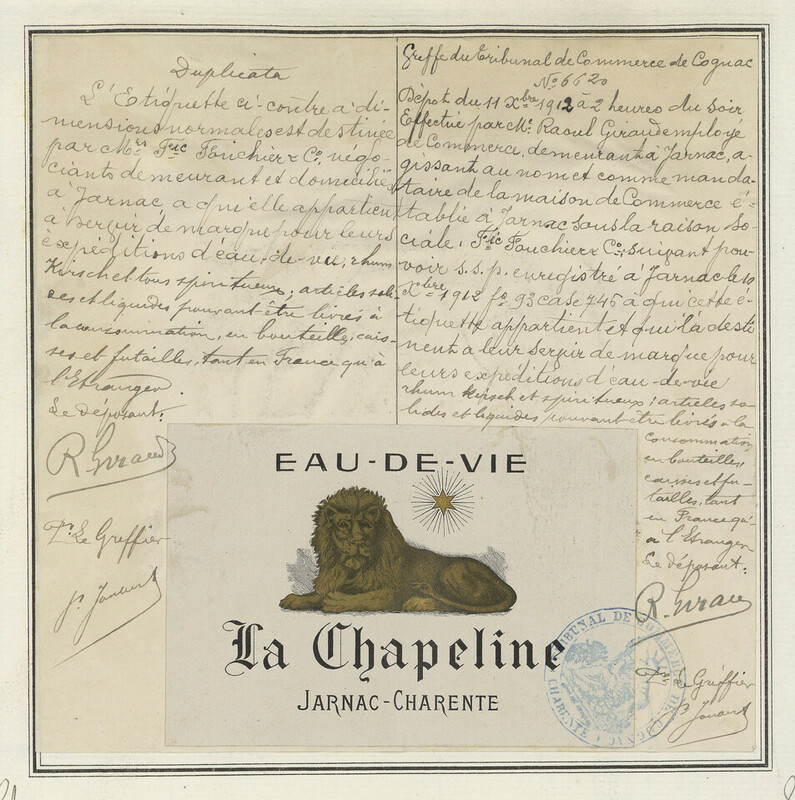 Duplicata
L'Etiquette ci-contre a di-
mensions normales est destinée
par Mrs Fic Fouchier & Co, négo-
ciants demeurant et domiciliés
à Jarnac, a qui elle appartient
à servir de marque pour leurs
expéditions d'eau-de-vie, rhum
Kirsch et tous spiritueux; articles soli-
des et liquides pouvant être livrés à
la consommation, en bouteilles, cais-
ses et futailles, tant en France qu'à
l'Etranger.
Le déposant:
R. Giraud
Pr Le Greffier
Greffe du Tribunal de Commerce de Cognac
No 6620
Dépôt du 11 Xbre 1912 à 2 heures du soir
Effectué par Mr Raoul Giraud employé
de Commerce, demeurant à Jarnac, a-
gissant au nom et comme manda-
taire de la maison de Commerce é-
tablie à Jarnac sous la raison So-
ciale: Fic Fouchier & Co; suivant pou-
voir s.s.p. enregistré à Jarnac le 10
Xbre 1912 fo 93 case 745 a qui cette é-
tiquette appartient et qui la desti
nent a leur servir de marque pour
leurs expéditions d'eau-de-vie
rhum Kirsch et spiritueux; articles so-
lides et liquides pouvant être livrés a la
consommation
en bouteilles
caisses et fu-
tailles, tant
en France qu'
à l'Etranger
Le déposant:
R. Giraud
Pr Le Greffier
EAU-DE-VIE
La Chapeline
JARNAC-CHARENTE
TRIBUNAL DE COMMERCE DE COGNAC
CHARENTE